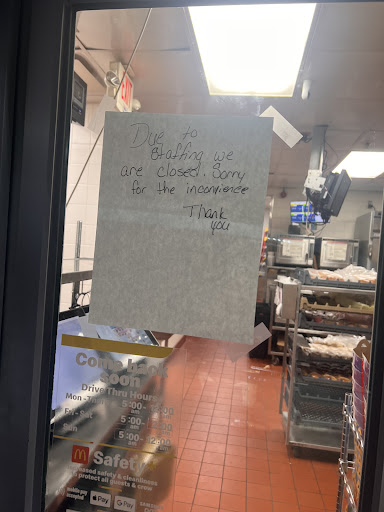 Due to
staffing we
are closed. Sorry
for the inconvience
Thank
you
Come back
soon
Drive Thru Hours
Mon -
5:00-
am
Fri - Sat
5:00-
am
Sun
5:00-
am
Safety
safety & cleanliness
protect all guests & crew
mobile pay
accepted
Pay
G Pay